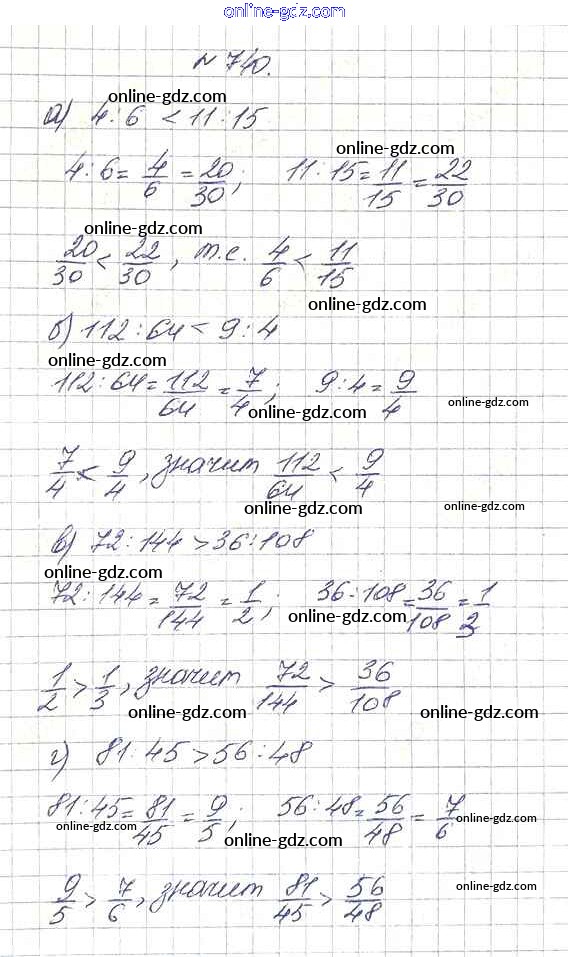 online-gdz.com
№ 740.
online-gdz.com
а) 4:6 < 11:15
4:6 = 4/6 = 20/30; 11:15 = 11/15 = 22/30
online-gdz.com
20/30 < 22/30, т.е. 4/6 < 11/15
online-gdz.com
б) 112:64 < 9:4
online-gdz.com
112:64 = 112/64 = 7/4; 9:4 = 9/4
online-gdz.com online-gdz.com
7/4 < 9/4, значит 112/64 < 9/4
online-gdz.com online-gdz.com
в) 72:144 > 36:108
online-gdz.com
72:144 = 72/144 = 1/2; 36:108 = 36/108 = 1/3
online-gdz.com
1/2 > 1/3, значит 72/144 > 36/108
online-gdz.com online-gdz.com
г) 81:45 > 56:48
81:45 = 81/45 = 9/5; 56:48 = 56/48 = 7/6
online-gdz.com online-gdz.com online-gdz.com
9/5 > 7/6, значит 81/45 > 56/48
online-gdz.com
online-gdz.com